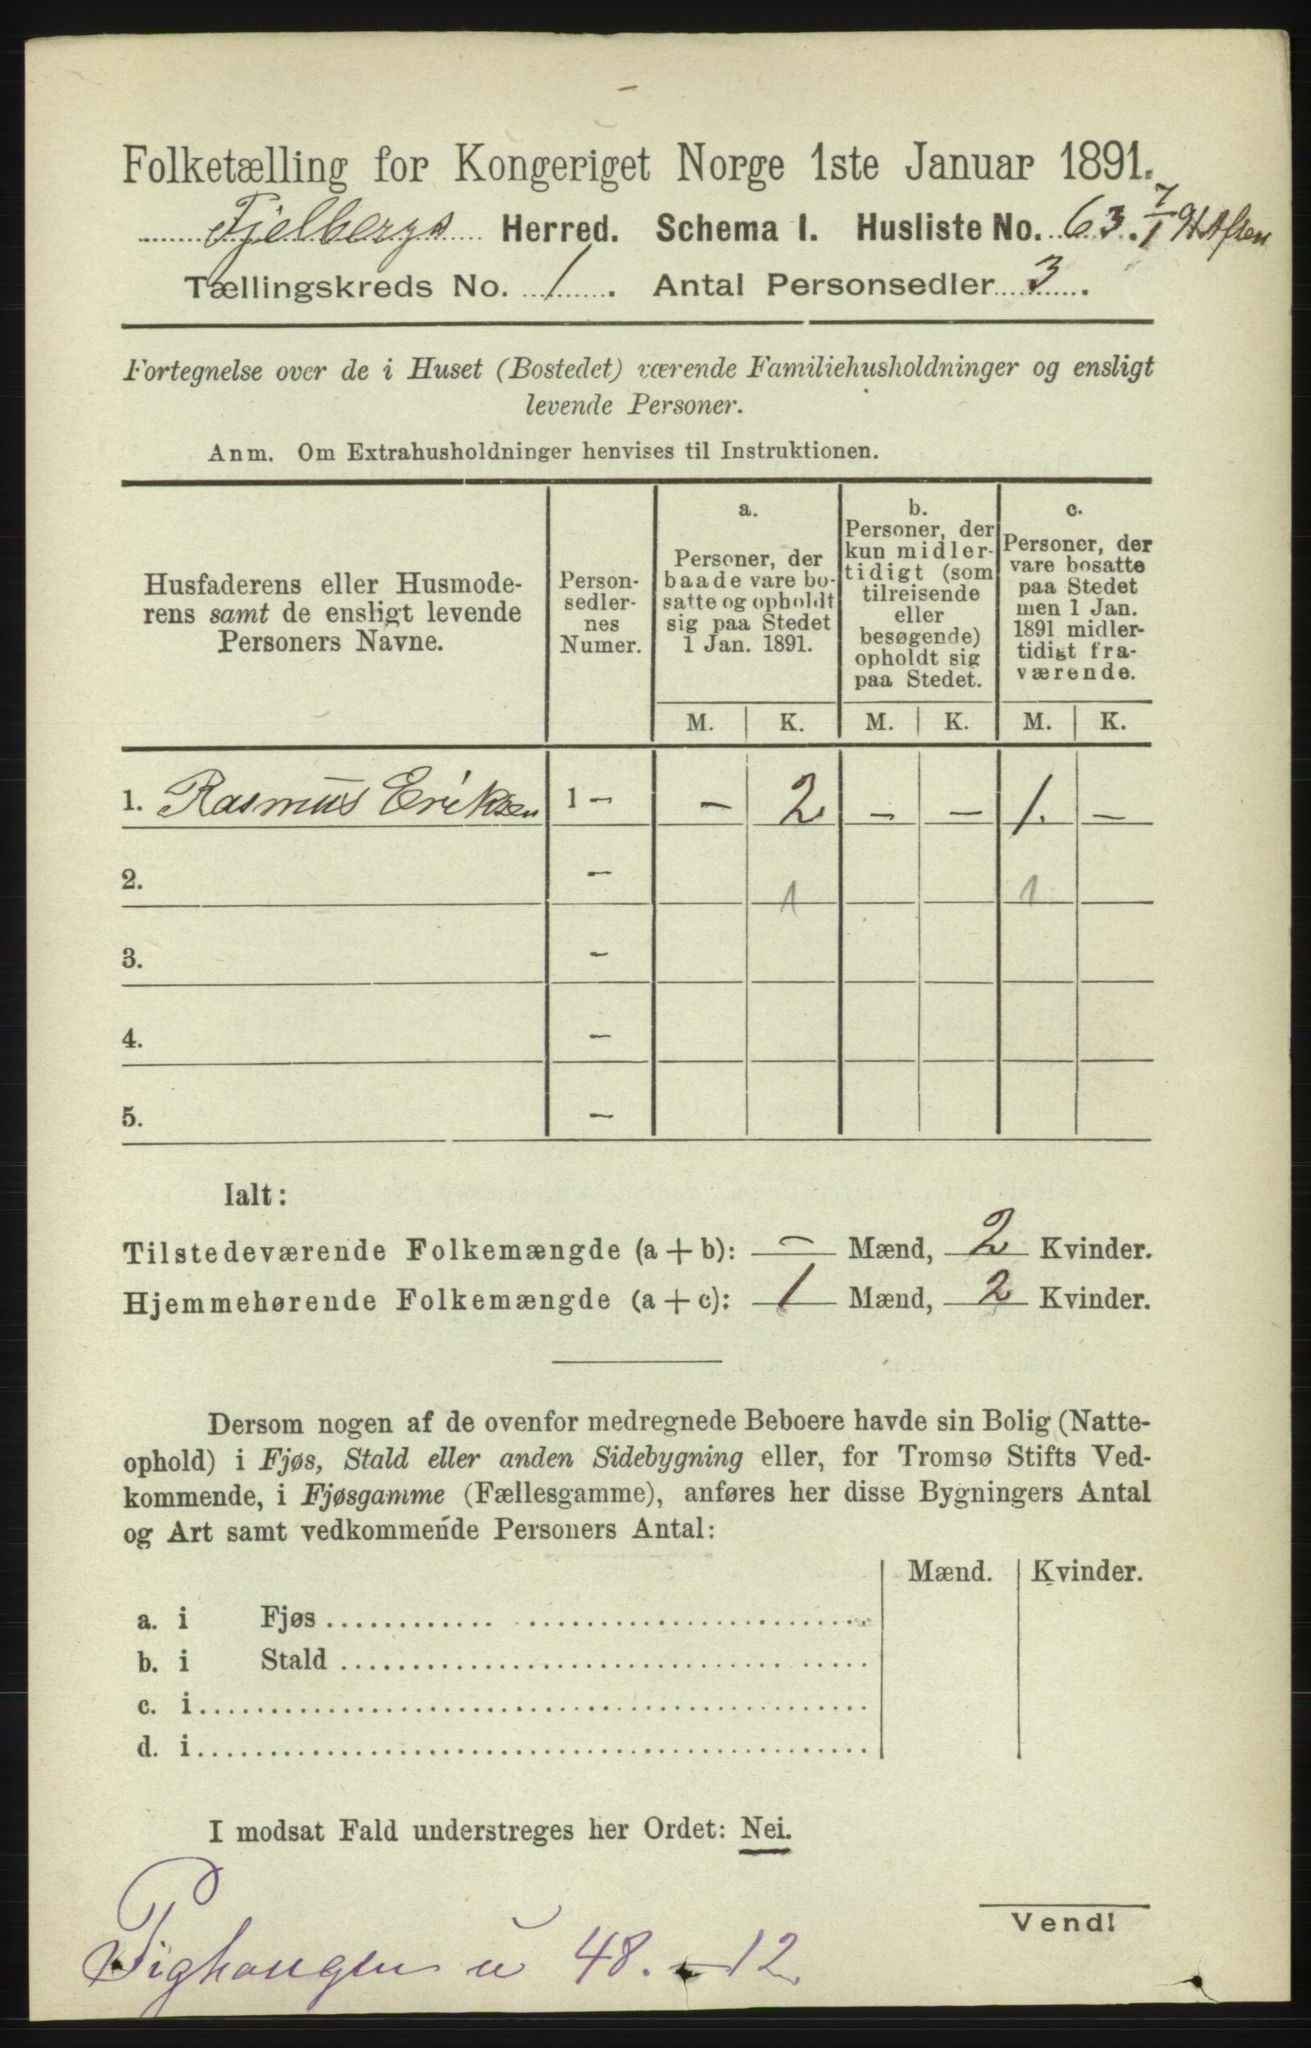 Folketælling for Kongeriget Norge 1ste Januar 1891.
Fjelbergs Herred. Schema I. Husliste No. 63. 7/1 91 Aften
Tællingskreds No. 1. Antal Personsedler 3.
Fortegnelse over de i Huset (Bostedet) værende Familiehusholdninger og ensligt
levende Personer.
Anm. Om Extrahusholdninger henvises til Instruktionen.
Husfaderens eller Husmode-
rens samt de ensligt levende
Personers Navne.
Person-
sedler-
nes
Numer.
a.
Personer, der
baade vare bo-
satte og opholdt
sig paa Stedet
1 Jan. 1891.
b.
Personer, der
kun midler-
tidigt (som
tilreisende
eller
besøgende)
opholdt sig
paa Stedet.
c.
Personer, der
vare bosatte
paa Stedet
men 1 Jan.
1891 midler-
tidigt fra-
værende.
M. K. M. K. M. K.
1. Rasmus Eriksen 1 — — 2 — — 1. —
2. — 1 1
3. —
4. —
5. —
Ialt:
Tilstedeværende Folkemængde (a + b): — Mænd, 2 Kvinder.
Hjemmehørende Folkemængde (a + c): 1 Mænd, 2 Kvinder.
Dersom nogen af de ovenfor medregnede Beboere havde sin Bolig (Natte-
ophold) i Fjøs, Stald eller anden Sidebygning eller, for Tromsø Stifts Ved-
kommende, i Fjøsgamme (Fællesgamme), anføres her disse Bygningers Antal
og Art samt vedkommende Personers Antal:
Mænd. Kvinder.
a. i Fjøs
b. i Stald
c. i
d. i
I modsat Fald understreges her Ordet: Nei.
Vend!
Pighaugen u 48. — 12